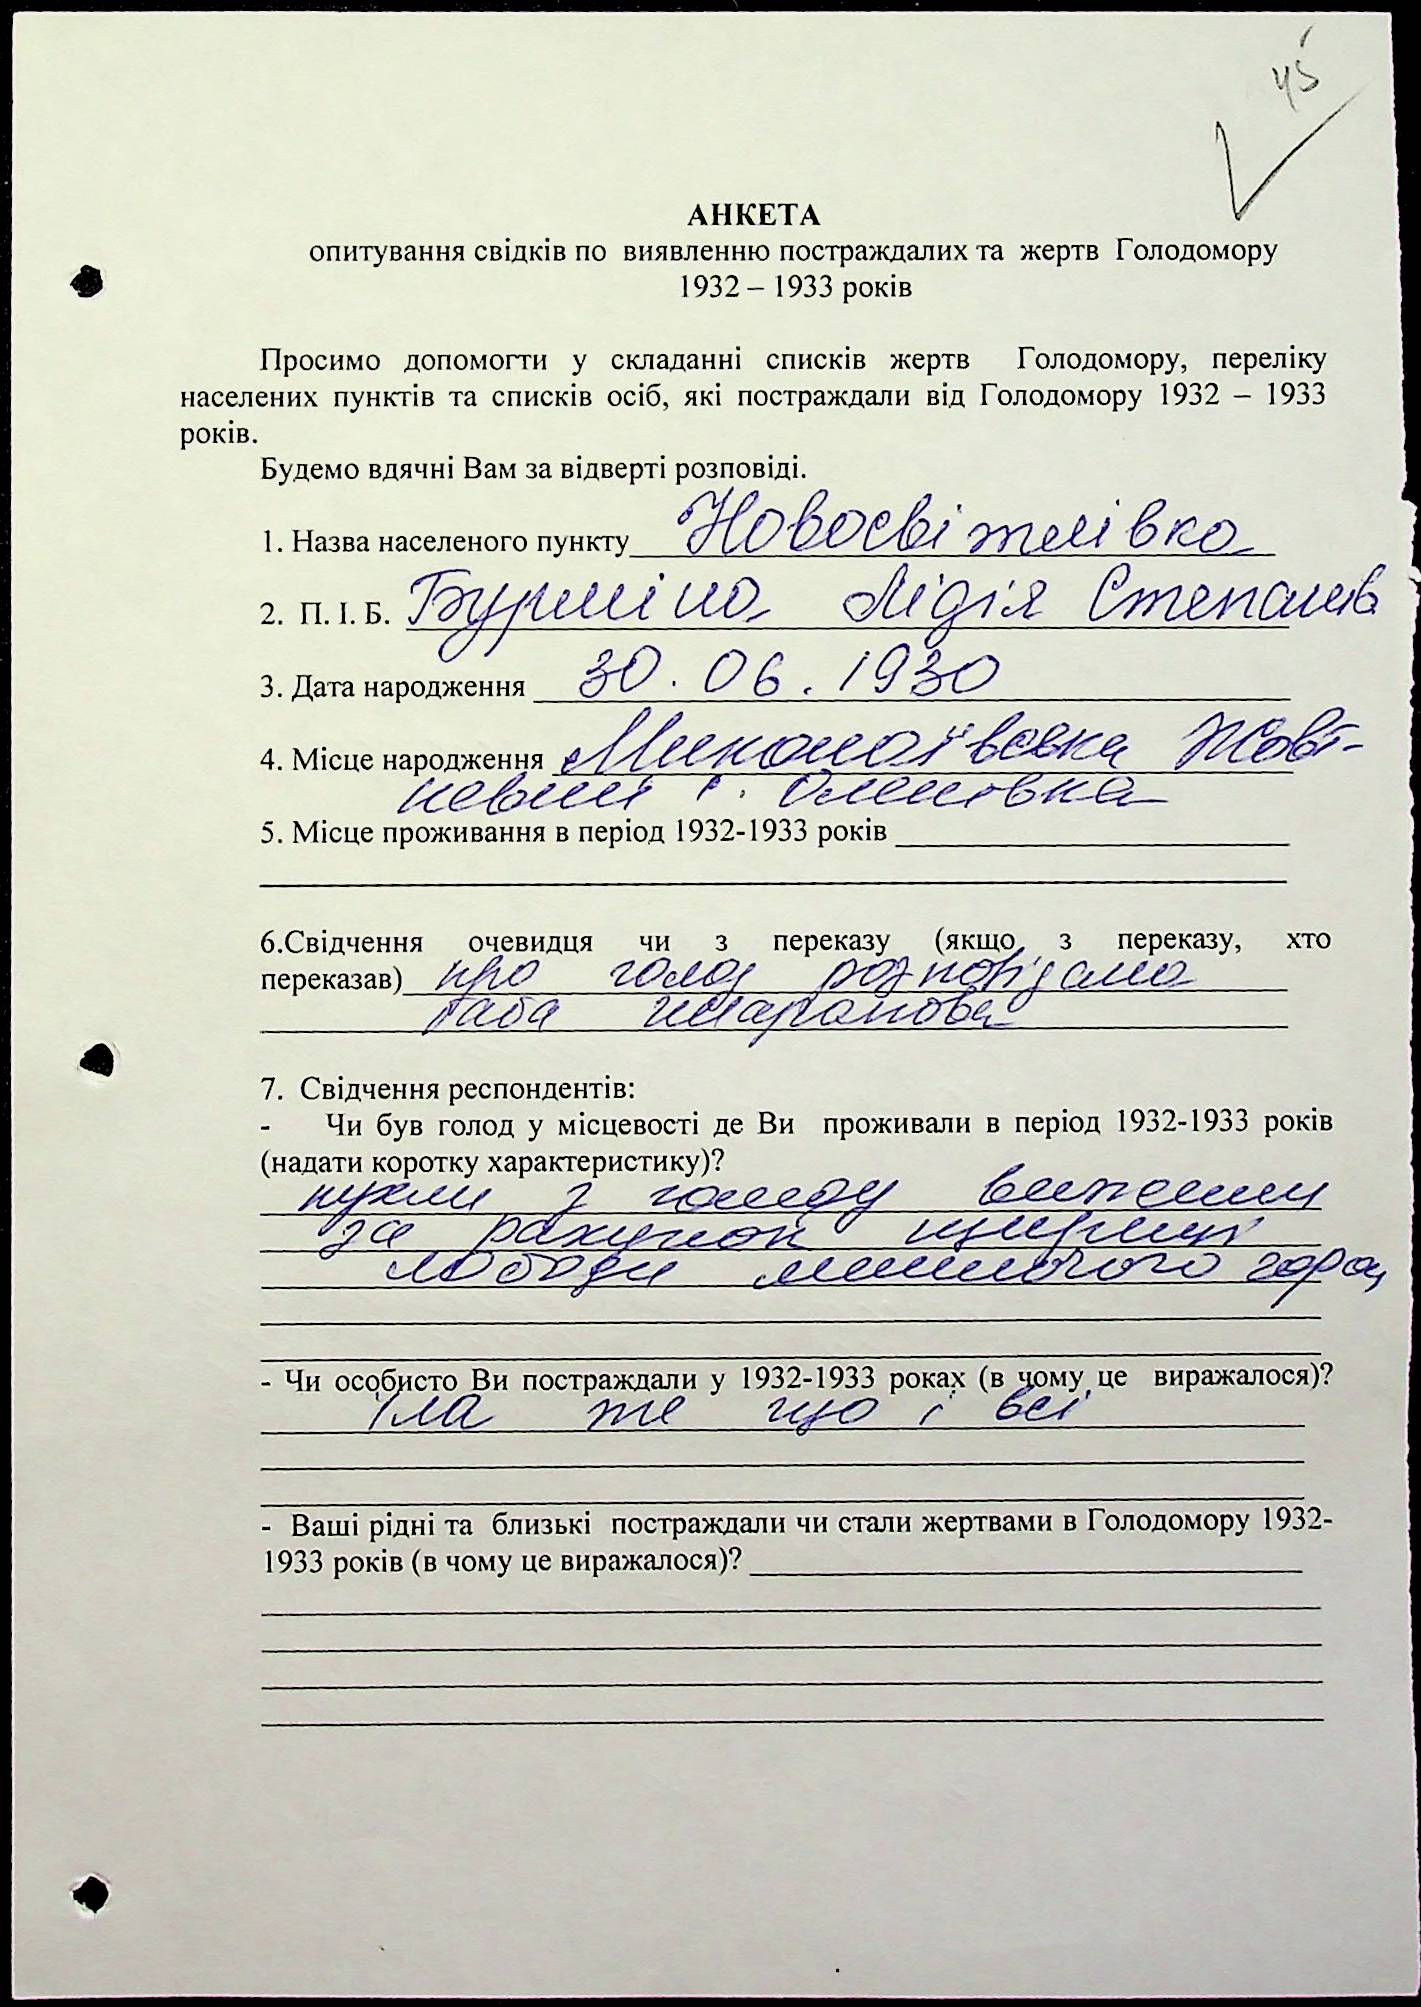 45
АНКЕТА
опитування свідків по виявленню постраждалих та жертв Голодомору
1932 – 1933 років
Просимо допомогти у складанні списків жертв Голодомору, переліку
населених пунктів та списків осіб, які постраждали від Голодомору 1932 – 1933
років.
Будемо вдячні Вам за відверті розповіді.
1. Назва населеного пункту Новосвітлівка
2. П. І. Б. Лідія Степанів
3. Дата народження 30.06.1930
4. Місце народження Миколаївська Жовт-
невий Оленовка
5. Місце проживання в період 1932-1933 років
6.Свідчення очевидця чи з переказу (якщо з переказу, хто
переказав) про голод розповідала
баба Шаранова
7. Свідчення респондентів:
- Чи був голод у місцевості де Ви проживали в період 1932-1933 років
(надати коротку характеристику)?
пухли з голоду вижили
за рахунок щириці
лободи
- Чи особисто Ви постраждали у 1932-1933 роках (в чому це виражалося)?
їла те що і всі
- Ваші рідні та близькі постраждали чи стали жертвами в Голодомору 1932-
1933 років (в чому це виражалося)?